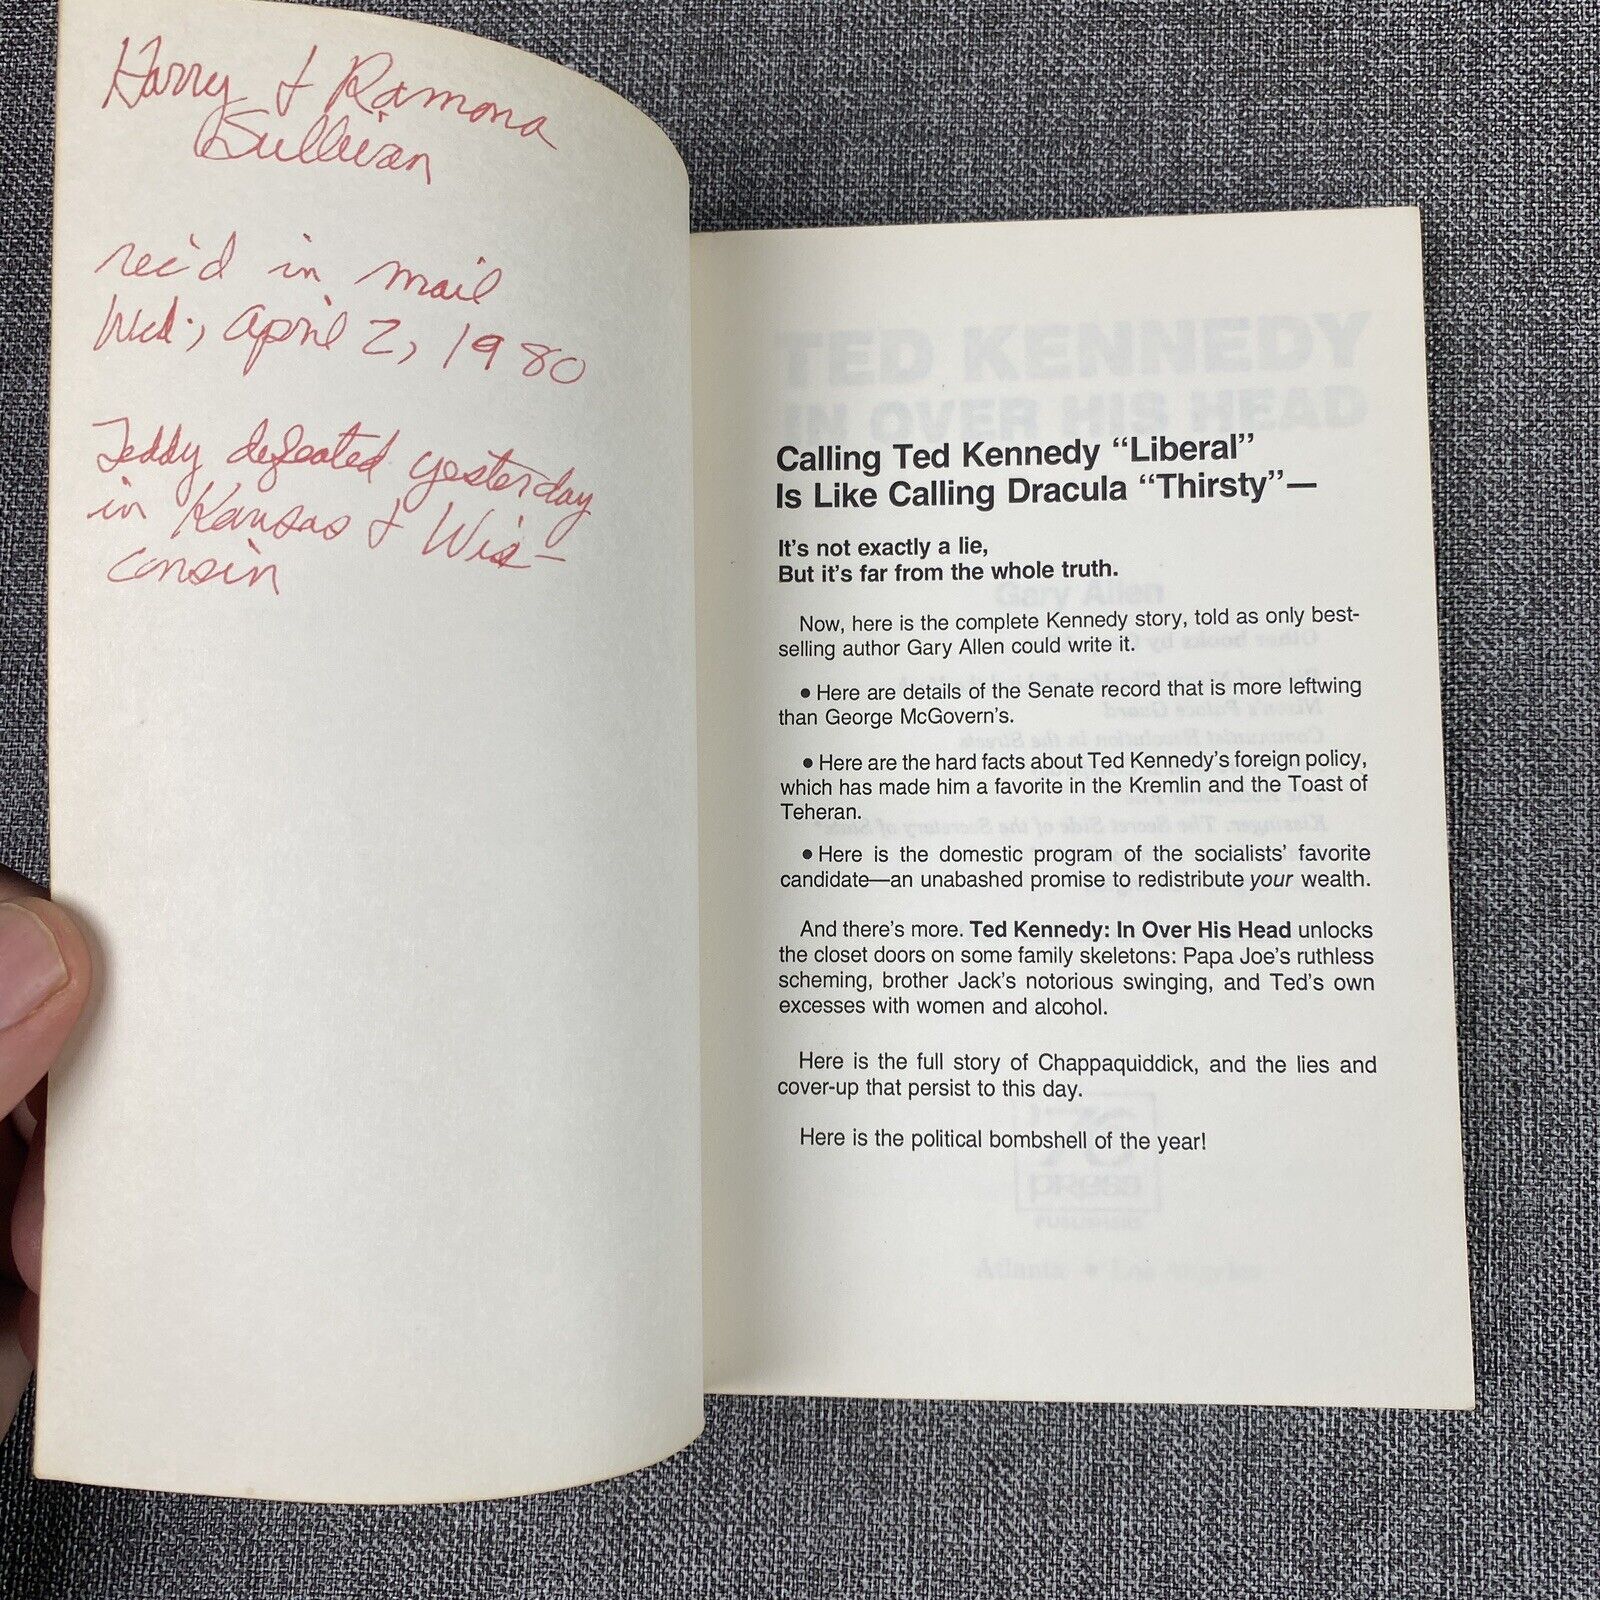 Harry & Ramona
Sullivan
rec'd in mail
Wed., April 2, 1980
Teddy defeated yesterday
in Kansas & Wis-
consin
TED KENNEDY
IN OVER HIS HEAD
Calling Ted Kennedy “Liberal”
Is Like Calling Dracula “Thirsty”—
It's not exactly a lie,
But it's far from the whole truth.
Gary Allen
Now, here is the complete Kennedy story, told as only best-
selling author Gary Allen could write it.
• Here are details of the Senate record that is more leftwing
than George McGovern's.
• Here are the hard facts about Ted Kennedy's foreign policy,
which has made him a favorite in the Kremlin and the Toast of
Teheran.
• Here is the domestic program of the socialists' favorite
candidate—an unabashed promise to redistribute your wealth.
And there's more. Ted Kennedy: In Over His Head unlocks
the closet doors on some family skeletons: Papa Joe's ruthless
scheming, brother Jack's notorious swinging, and Ted's own
excesses with women and alcohol.
Here is the full story of Chappaquiddick, and the lies and
cover-up that persist to this day.
Here is the political bombshell of the year!
'76
press
PUBLISHERS
Atlanta •